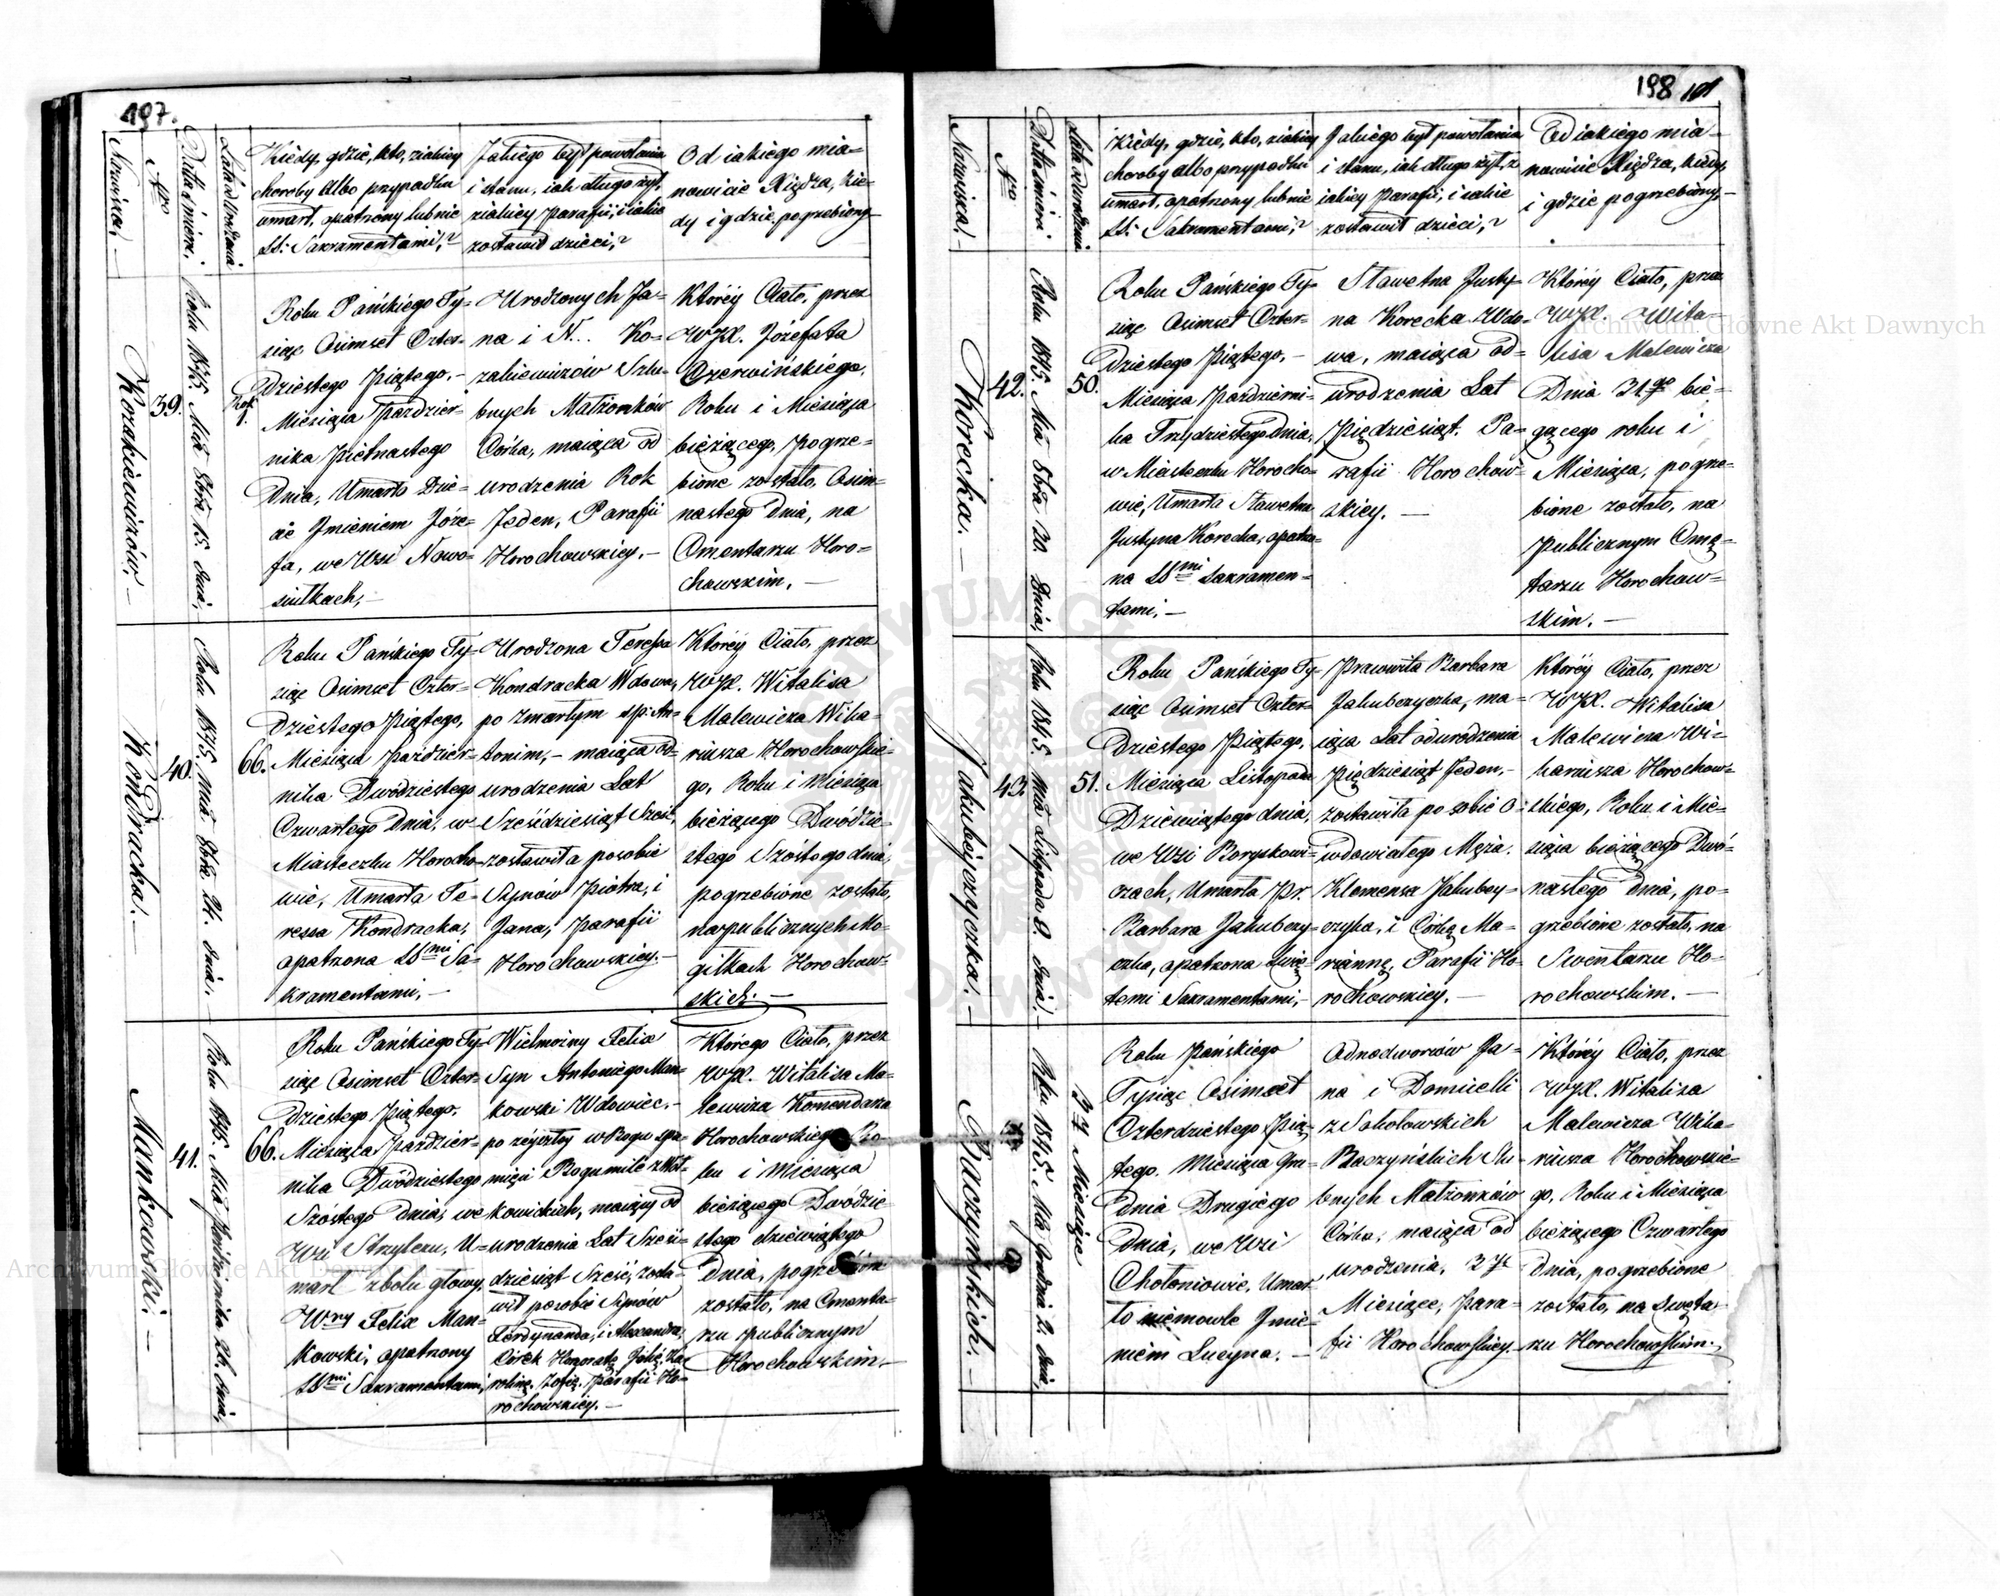 197.
Nazwiska,
Nro
Datta śmierci,
Lata Urodzenia
Kiedy, gdzie, kto, ziakiey
choroby albo przypadku
umarł, opatrzony lub nie
SS: Sakramentami,?
Jakiego był powołania
i stanu, iak długo żył,
ziakiey Parafii, i iakie
zostawił dzieci,?
Od iakiego mia-
nowicie Xiędza, kie-
dy i gdzie pogrzebiony
Kozakiewiczów,
39.
Roku 1845. Mca 8bra 15. dnia,
Rok
1.
Roku Pańskiego Ty-
siąc Osimset Czter-
dziestego Piątego,
Miesiąca Paździer-
nika Piętnastego
Dnia, Umarło Dzie-
cie Jmieniem Józe-
fa, we Wsi Nowo-
siułkach,
Urodzonych Ja-
na i N... Ko-
zakiewiczów Szlu-
bnych Małżonków
Córka, maiąca od
urodzenia Rok
Jeden, Parafii
Horochowskiey.
Któréy Ciało, przez
WJX. Józefata
Czerwińskiego,
Roku i Miesiąca
bieżącego, pogrze-
bione zostało, Osim-
nastego Dnia, na
Cmentarzu Horo-
chowskim,
Kondracka.
40.
Roku 1845. Mca 8bra 24. dnia.
66.
Roku Pańskiego Ty-
siąc Osimset Czter-
dziestego Piątego,
Miesiąca Paździer-
nika Dwódziestego
Czwartego Dnia, w
Miasteczku Horocho-
wie, Umarła Te-
ressa Kondracka,
opatrzona SSmi Sa-
kramentami,
Urodzona Teressa
Kondracka Wdowa,
po zmarłym ś.p: An-
tonim, maiąca od
urodzenia Lat
Sześćdziesiąt Sześć,
zostawiła po sobie
Synów Piotra, i
Jana, Parafii
Horochowskiey.
Któréy Ciało, przez
WJX. Witalisa
Malewicza Wika-
riusza Horochowskie-
go, Roku i Miesiąca
bieżącego Dwódzie-
stego Szóstego dnia,
pogrzebione zostało,
na publicznych Mo-
giłkach Horochow-
skich.
Mankowski.
41.
Roku 1845. Mca Października 26. dnia,
66.
Roku Pańskiego Ty-
siąc Osimset Czter-
dziestego Piątego,
Miesiąca Paździer-
nika Dwódziestego
Szóstego Dnia, we
Wsi Strzylczu, U-
marł zbolu głowy,
Wny Felix Man-
kowski, opatrzony
SSmi Sakramentami,
Wielmożny Felix
Syn Antoniego Man-
kowski Wdowiec.
po zeyszłey w Bogu żo-
nie Bogumile z Wit-
kowickich, maiący od
urodzenia Lat Sześć-
dziesiąt Sześć, zosta-
wił po sobie Synów
Ferdynanda, i Alexandra,
Córek Honoratę, Julię, Ka-
rolinę, Zofię. Parafii Ho-
rochowskiey.
Którego Ciało, przez
WJX. Witalisa Ma-
lewicza Komendarza
Horochowskiego Ro-
ku i Miesiąca
bieżącego Dwódzie-
stego dziewiątego
Dnia, pogrzebione
zostało, na Cmenta-
rzu publicznym
Horochowskim.
198
101
Nazwiska,
Nro
Datta śmierci
Lata Urodzenia
Kiedy, gdzie, kto, ziakiey
choroby albo przypadku
umarł, opatrzony lub nie
SS: Sakramentami,?
Jakiego był powołania
i stanu, iak długo żył, z
iakiey Parafii, i iakie
zostawił dzieci,?
Od iakiego mia-
nowicie Xiędza, kiedy
i gdzie pogrzebiony,
Korecka.
42.
Roku 1845. Mca 8bra 30. Dnia,
50.
Roku Pańskiego Ty-
siąc Osimset Czter-
dziestego Piątego,
Miesiąca Październi-
ka Trzydziestego Dnia,
w Miasteczku Horocho-
wie, Umarła Sławetna
Justyna Korecka, opatrzo-
na SSmi Sakramen-
tami,
Sławetna Justy-
na Korecka Wdo-
wa, maiąca od-
urodzenia Lat
Pięćdziesiąt, Pa-
rafii Horochow-
skiey.
Któréy Ciało, przez
WJX. Wita-
lisa Malewicza
Dnia 31go bie-
gącego roku i
Miesiąca, pogrze-
bione zostało, na
Publicznym Cmę-
tarzu Horochow-
skim.
Jakubéyczyczka.
43.
Roku 1845. Mca Listopada 9. dnia,
51.
Roku Pańskiego Ty-
siąc Osimset Czter-
dziestego Piątego,
Miesiąca Listopada
Dziewiątego dnia,
we Wsi Boryskowi-
czach, Umarła Pr.
Barbara Jakubczy-
czka, opatrzona Świę-
temi Sakramentami,
Pracowita Barbara
Jakubczyczka, ma-
iąca Lat od urodzenia
Pięćdziesiąt Jeden,
zostawiła po sobie o-
wdowiałego Męża.
Klemensa Jakubey-
czyka, i Córkę Ma-
riannę, Parafii Ho-
rochowskiey.
Któréy Ciało, przez
WJX. Witalisa
Malewicza Wi-
kariusza Horochow-
skiego, Roku i Mie-
siąca bieżącego Dwó-
nastego Dnia, po-
grzebione zostało, na
Smentarzu Ho-
rochowskim.
Baczyńskich.
Roku 1845. Mca Grudnia 2. dnia,
3 Miesiące
Roku Pańskiego
Tysiąc Osimset
Czterdziestego Pią-
tego, Miesiąca Gru-
dnia Drugiego
Dnia, we Wsi
Chołoniowie, Umar-
ło niemowle Jmie-
niem Lucyna.
Odnodworców Ja-
na i Domicelli
z Sokołowskich
Baczyńskich Szlu-
bnych Małżonków
Córka, maiąca od
urodzenia,
Miesiące, Para-
fii Horochowskiey.
Któréy Ciało, przez
WJX. Witalisa
Malewicza Wika-
riusza Horochowskie-
go, Roku i Miesiąca
bieżącego Czwartego
Dnia, pogrzebione
zostało, na Smęta-
rzu Horochowskim.
Archiwum Główne Akt Dawnych
Archiwum Główne Akt Dawnych